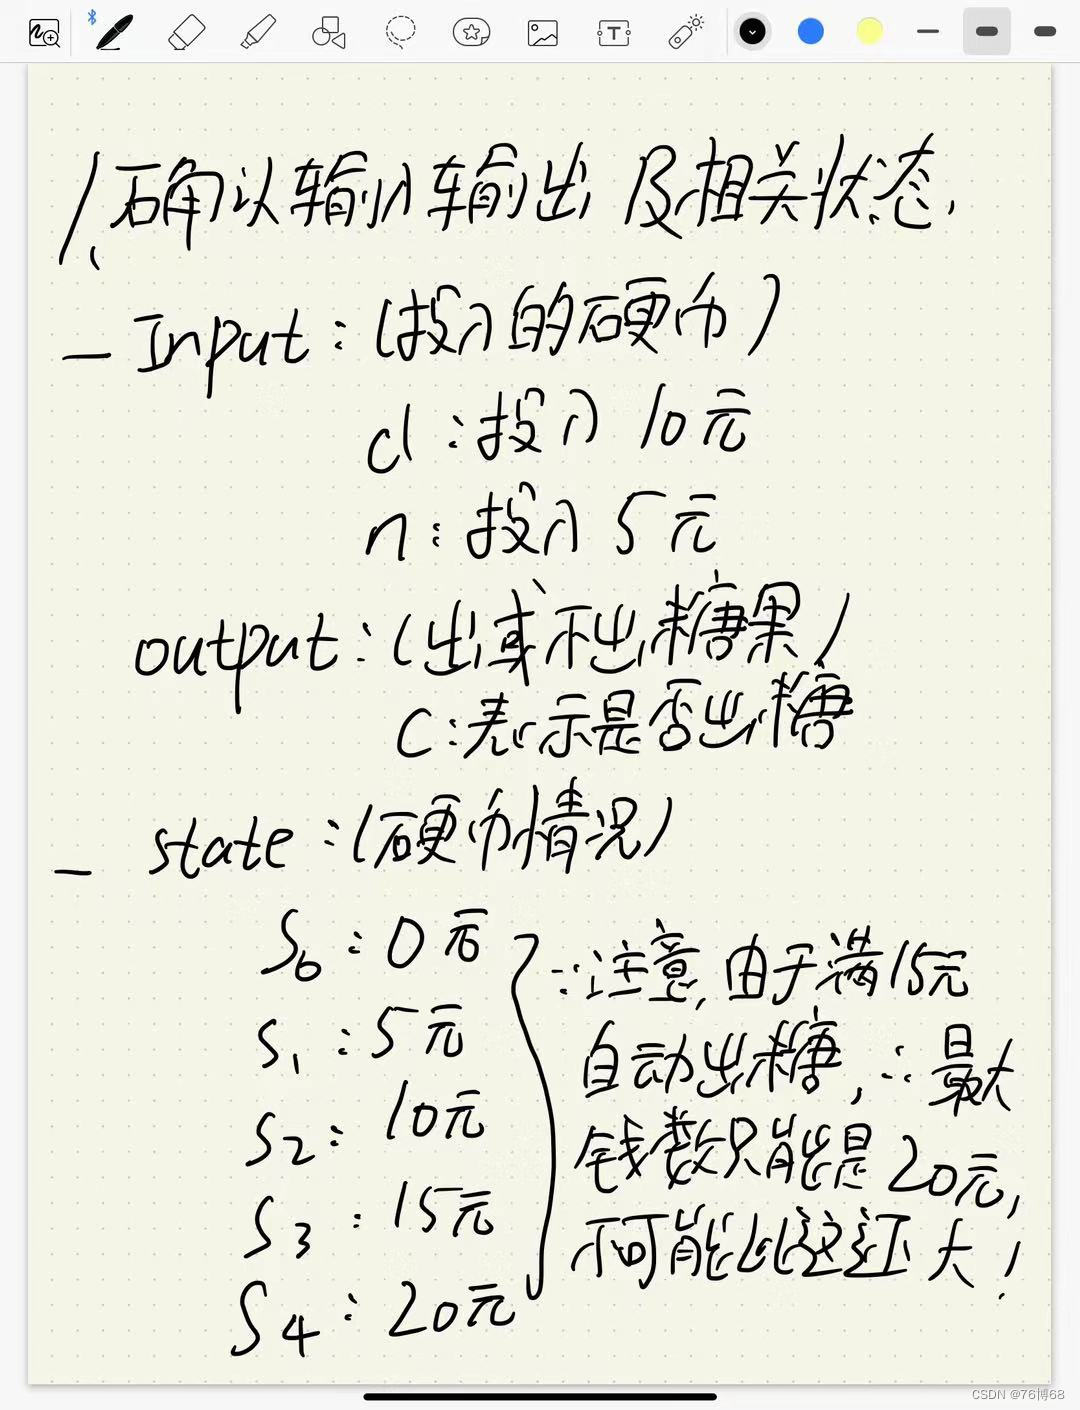 1、确认输入输出及相关状态,
— Input:(投入的硬币)
d:投入10元
n:投入5元
output:(出或不出糖果)
C:表示是否出糖
— state:(硬币情况)
S0:0元
S1:5元
S2:10元
S3:15元
S4:20元
∵注意,由于满15元
自动出糖,∴最大
钱数只能是20元,
不可能比这还大!
CSDN @76博68